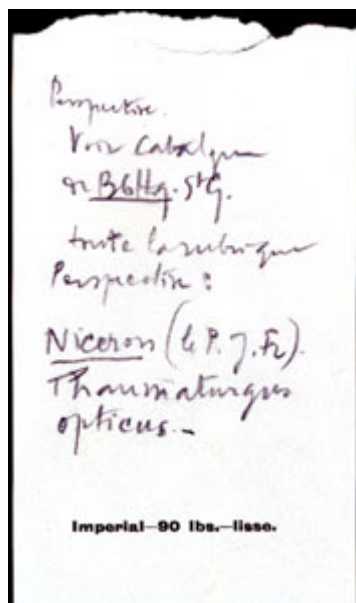 Perspective.
Voir Catalogue
de Bbliq. St G.
toute la rubrique
Perspective :
Niceron (le P. J. Fr).
Thaumaturgus
opticus.—
Imperial—90 lbs.—lisse.